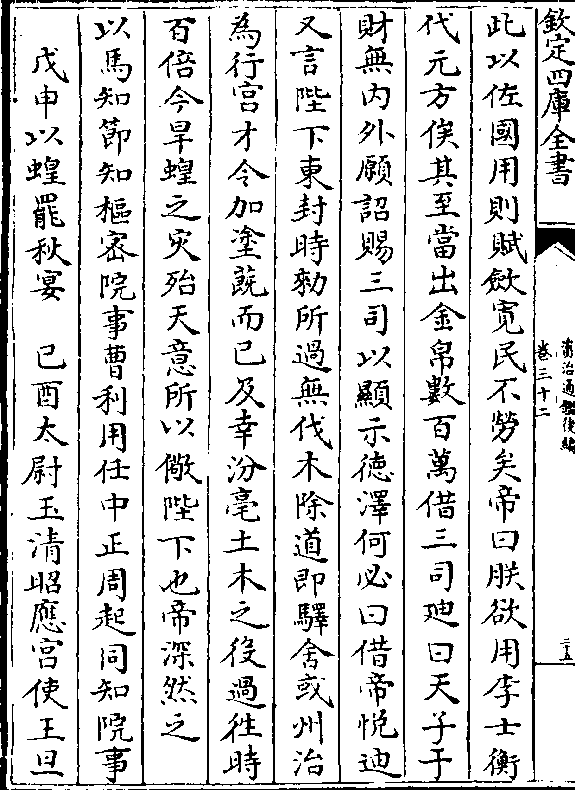 欽定四庫全書
資治通鑑後編
卷三十二
二十五
此以佐國用則賦斂寛民不勞矣帝曰朕欲用李士衡
代元方俟其至當出金帛數百萬借三司廸曰天子于
財無内外願詔賜三司以顯示徳澤何必曰借帝悦廸
又言陛下東封時勅所過無伐木除道即驛舍或州治
為行宫才令加塗墍而已及幸汾亳土木之役過徃時
百倍今旱蝗之灾殆天意所以儆陛下也帝深然之
以馬知節知樞密院事曹利用任中正周起同知院事
戊申以蝗罷秋宴　己酉太尉玉清昭應宫使王旦